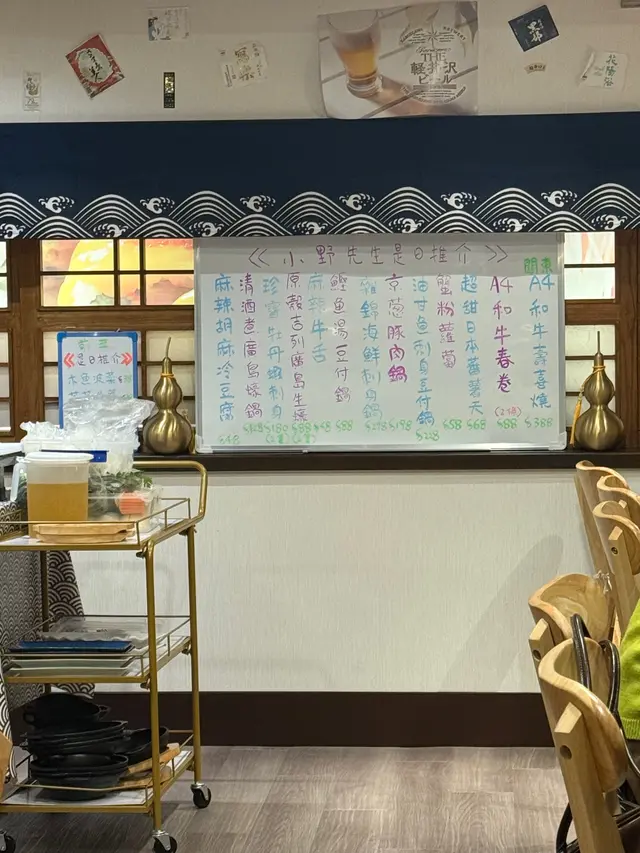 THE
軽井沢
ビール
<<小野先生是日推介>>
關東
A4和牛壽喜燒
$388
A4和牛春卷
(2條)
$88
超甜日本蕃薯天
$68
蟹粉蘿蔔
$58
油甘魚刺身豆付鍋
$228
京蔥豚肉鍋
$198
錦海鮮刺身鍋
鰹魚湯豆付鍋
$88
麻辣牛舌
原殼吉列廣島生蠔
$88
珍寶牡丹蝦刺身
$180
清酒煮廣島蠔鍋
$128
麻辣胡麻冷豆腐
$48
<<是日推介>>
木魚波菜